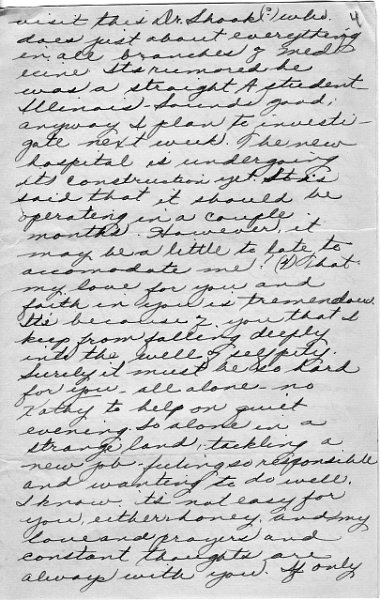 4
visit this Dr. Shook(?) who
does just about everything
in all branches of med
ecine. Its rumored he
was a straight A student-
Illinois. Sounds good;
anyway I plan to investi-
gate next week. The new
hospital is undergoing
its construction yet. It is
said that it should be
operating in a couple
months. However, it
may be a little to late to
accomodate me. (4) That
my love for you and
faith in you is tremendous.
It's because of you that I
keep from falling deeply
into the well of self pity.
Surely it must be so hard
for you - all alone - no
Kathy to help on quiet
evening. So alone in a
strange land, tackling a
new job, feeling so responsible
and wanting to do well.
I know its not easy for
you, either, honey. and my
love and prayers and
constant thoughts are
always with you. If only